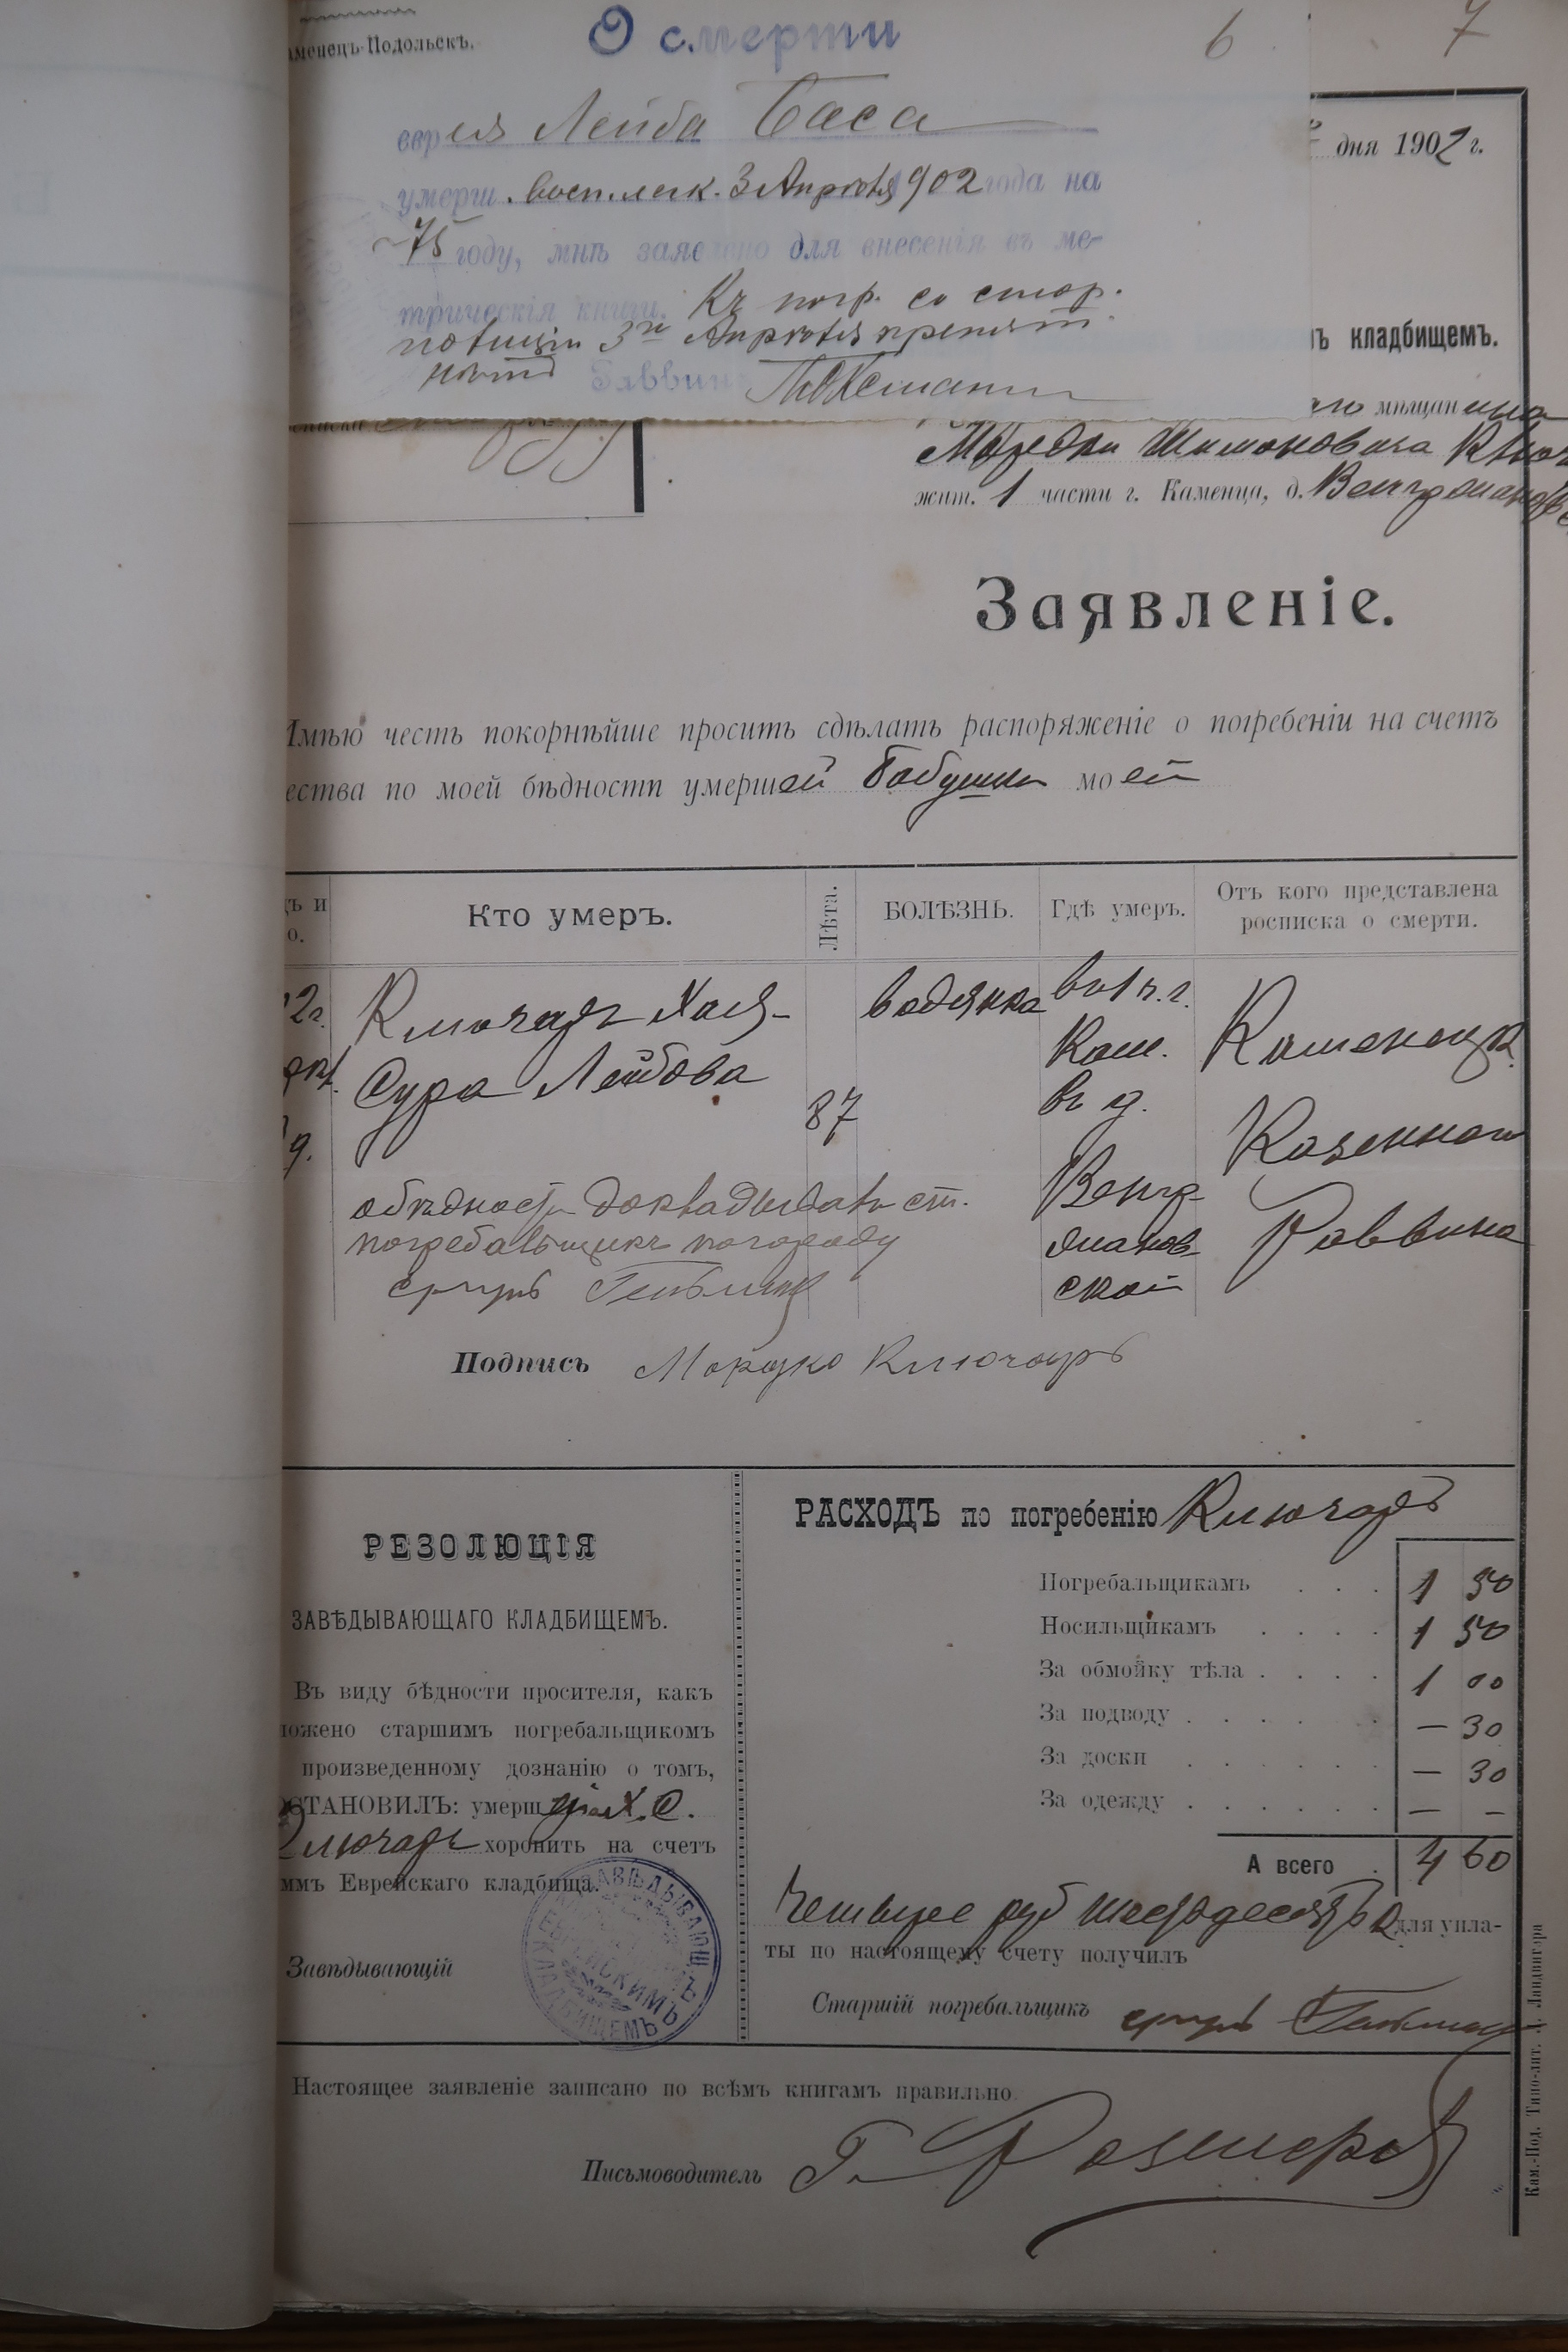 Каменецъ-Подольскъ.
О смерти
6
7
еврея Лейба Баса
умерш. восп. легк. 3 Апрѣля 1902 года на
75 году, мнѣ заявлено для внесенія въ ме-
трическія книги. Къ погр. со стор.
полиціи 3го Апрѣля препят.
нѣтъ
Раввинъ
дня 1902 г.
ъ кладбищемъ.
мѣщанина
Мордки Шимоновича Ключ
жит. 1 части г. Каменца, д.
Заявленіе.
Имѣю честь покорнѣйше просить сдѣлать распоряженіе о погребеніи на счетъ
ества по моей бѣдности умершей бабушки моей
ъ и
о.
Кто умеръ.
Лѣта.
БОЛѢЗНЬ.
Гдѣ умеръ.
Отъ кого представлена
росписка о смерти.
2г.
Ключаръ Хая-
Сура Лейбова
87
водянка
въ 1 ч. г.
Кам.
въ д.
Каменецк.
Казеннаго
Раввина
о бѣдности докладывалъ ст.
погребальщикъ по городу
Подпись Мордко Ключаръ
РЕЗОЛЮЦІЯ
ЗАВѢДЫВАЮЩАГО КЛАДБИЩЕМЪ.
Въ виду бѣдности просителя, какъ
ложено старшимъ погребальщикомъ
произведенному дознанію о томъ,
ОСТАНОВИЛЪ: умершую Х. С.
Ключаръ хоронить на счетъ
ммъ Еврейскаго кладбища.
Завѣдывающій
ЗАВѢДЫВАЮЩ
ЕВРЕЙСКИМЪ
КЛАДБИЩЕМЪ
РАСХОДЪ по погребенію Ключаръ
Погребальщикамъ . . . 1 50
Носильщикамъ . . . . 1 50
За обмойку тѣла . . . . 1 00
За подводу . . . . . — 30
За доски . . . . . . — 30
За одежду . . . . . . — –
А всего . 4 60
Четыре руб шестьдесятъ к для упла-
ты по настоящему счету получилъ
Старшій погребальщикъ
Настоящее заявленіе записано по всѣмъ книгамъ правильно.
Письмоводитель Г.
Кам.-Под. Типо-лит. Ландвигера